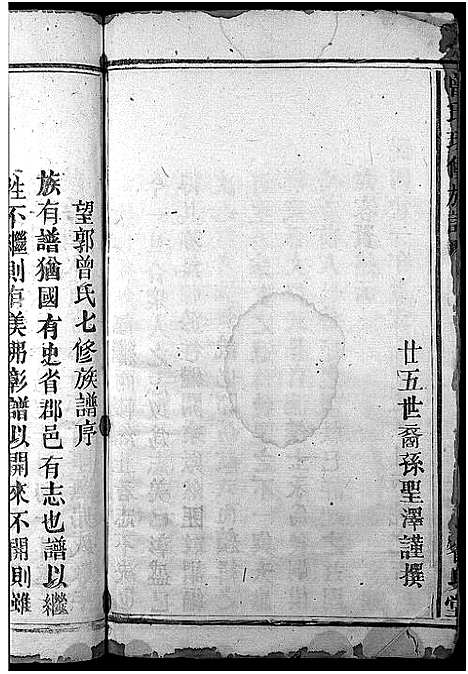 曾氏七修族譜
廿五世裔孫聖澤謹撰
望郭曾氏七修族譜序
族有譜猶國有史省郡邑有志也譜以繼
往不繼則有美弗彰譜以開來不開則雖